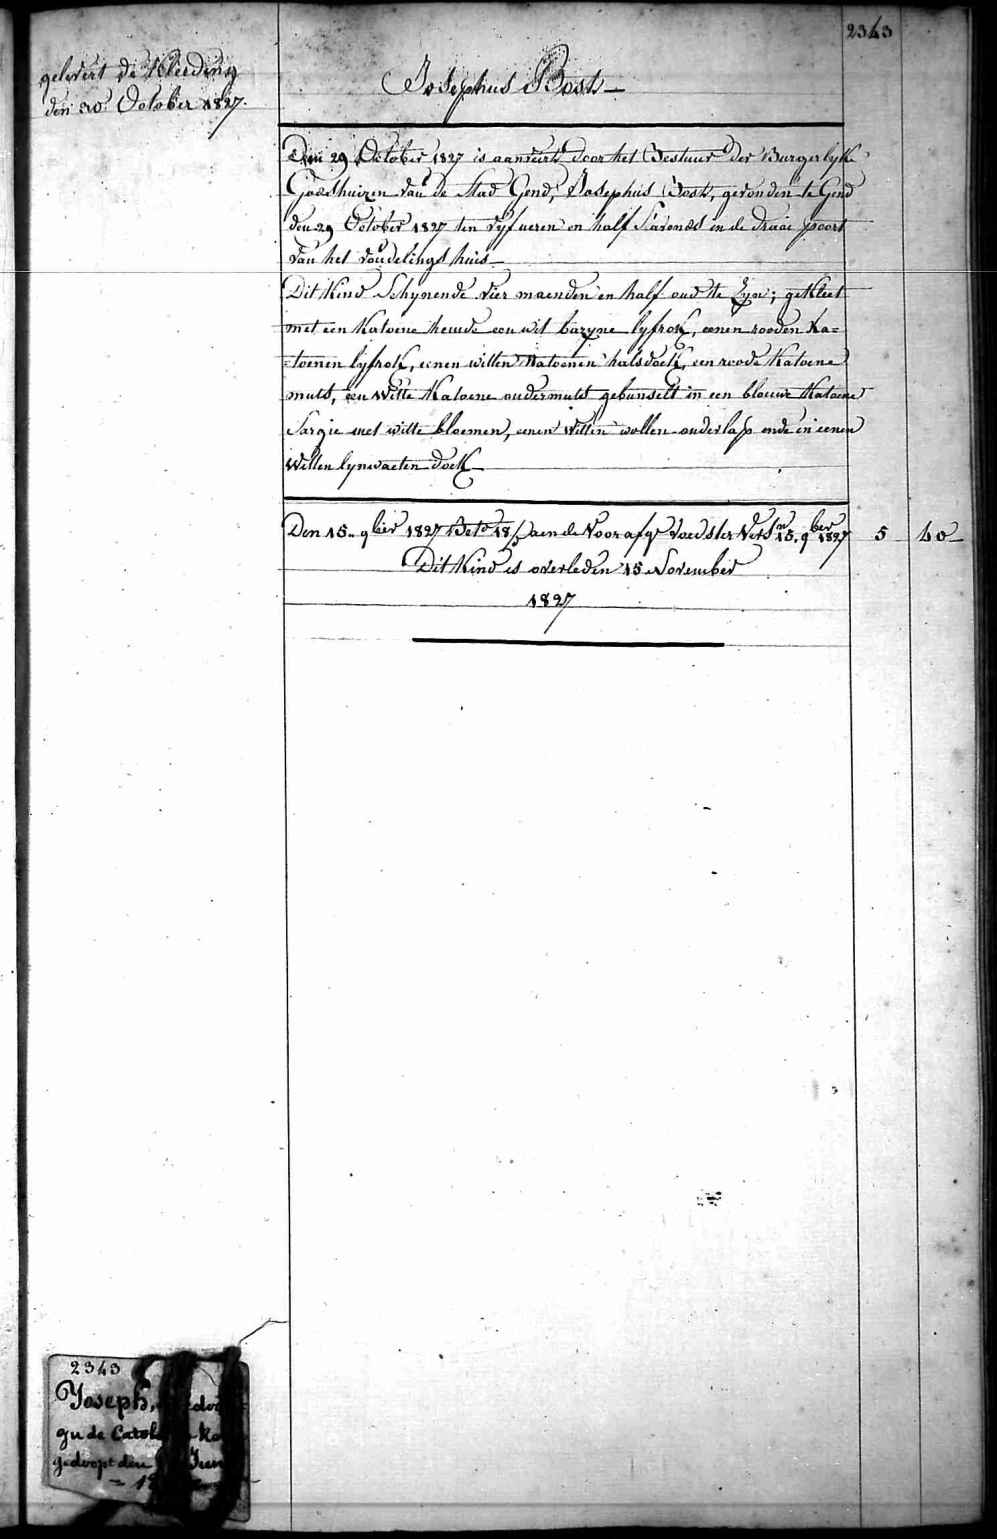 2343
gelevert de Kleeding
den 30 October 1827.
Josephus Bosk
Den 29 October 1827 is aanveird door het Bestuur der Burgerlyke
Godshuizen van de Stad Gend, Josephus Bosk, gevonden te Gend
den 29 October 1827 ten vyf ueren en half s'avonds in de draai poort
van het vondelings huis
Dit Kind Schynende vier maenden en half oud te Zyn; gekleet
met een Katoene hemde een wit bazyne lyfrok, eenen rooden Ka=
=toenen lyfrok, eenen witten Katoenen halsdoek, een roode Katoene
muts, een Witte Katoene ondermuts gebunselt in een blouwe Katoene
Sargie met witte bloemen, eenen Witten wollen onderlap ende in eenen
Witten lynwaeten doek
Den 15. 9ber 1827 Betd 18/ aende Voorafge Voedster 15. 9ber 1827 5 40
Dit Kind is overleden 15 November
1827
2343
Joseph,
gedoopt den